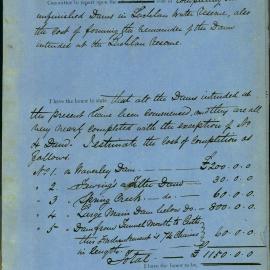 Committee to report upon the
unfinished Dams in Lachlan Water Reserve, also
the cost of forming the remainder of the Dams
intended at the Lachlan Reserve.
I have the honor to state, that all the Dams intended at
the present have been commenced, and they are all
very nearly completed with the exception of No
4 Dam. I estimate the cost of completion as
follows.
No 1. a Waverley Dam £200.0.0
" 2. Dam 30.0.0
" 3. Spring Creek do 60.0.0
" 4. Large Main Dam below do 800.0.0
" 5 Dam from Tunnel Mouth to
this Embankment is 7½ Chains 60.0.0
in length. Total £1150.0.0
I have the honor to be,